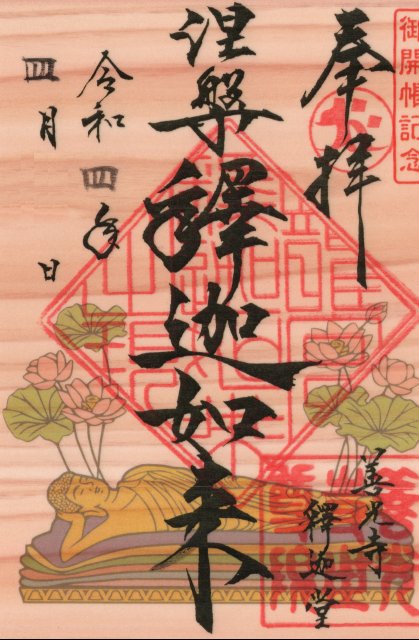 御開帳記念
奉拝
涅槃釋迦如来
令和四年
四月　日
善光寺
釋迦堂